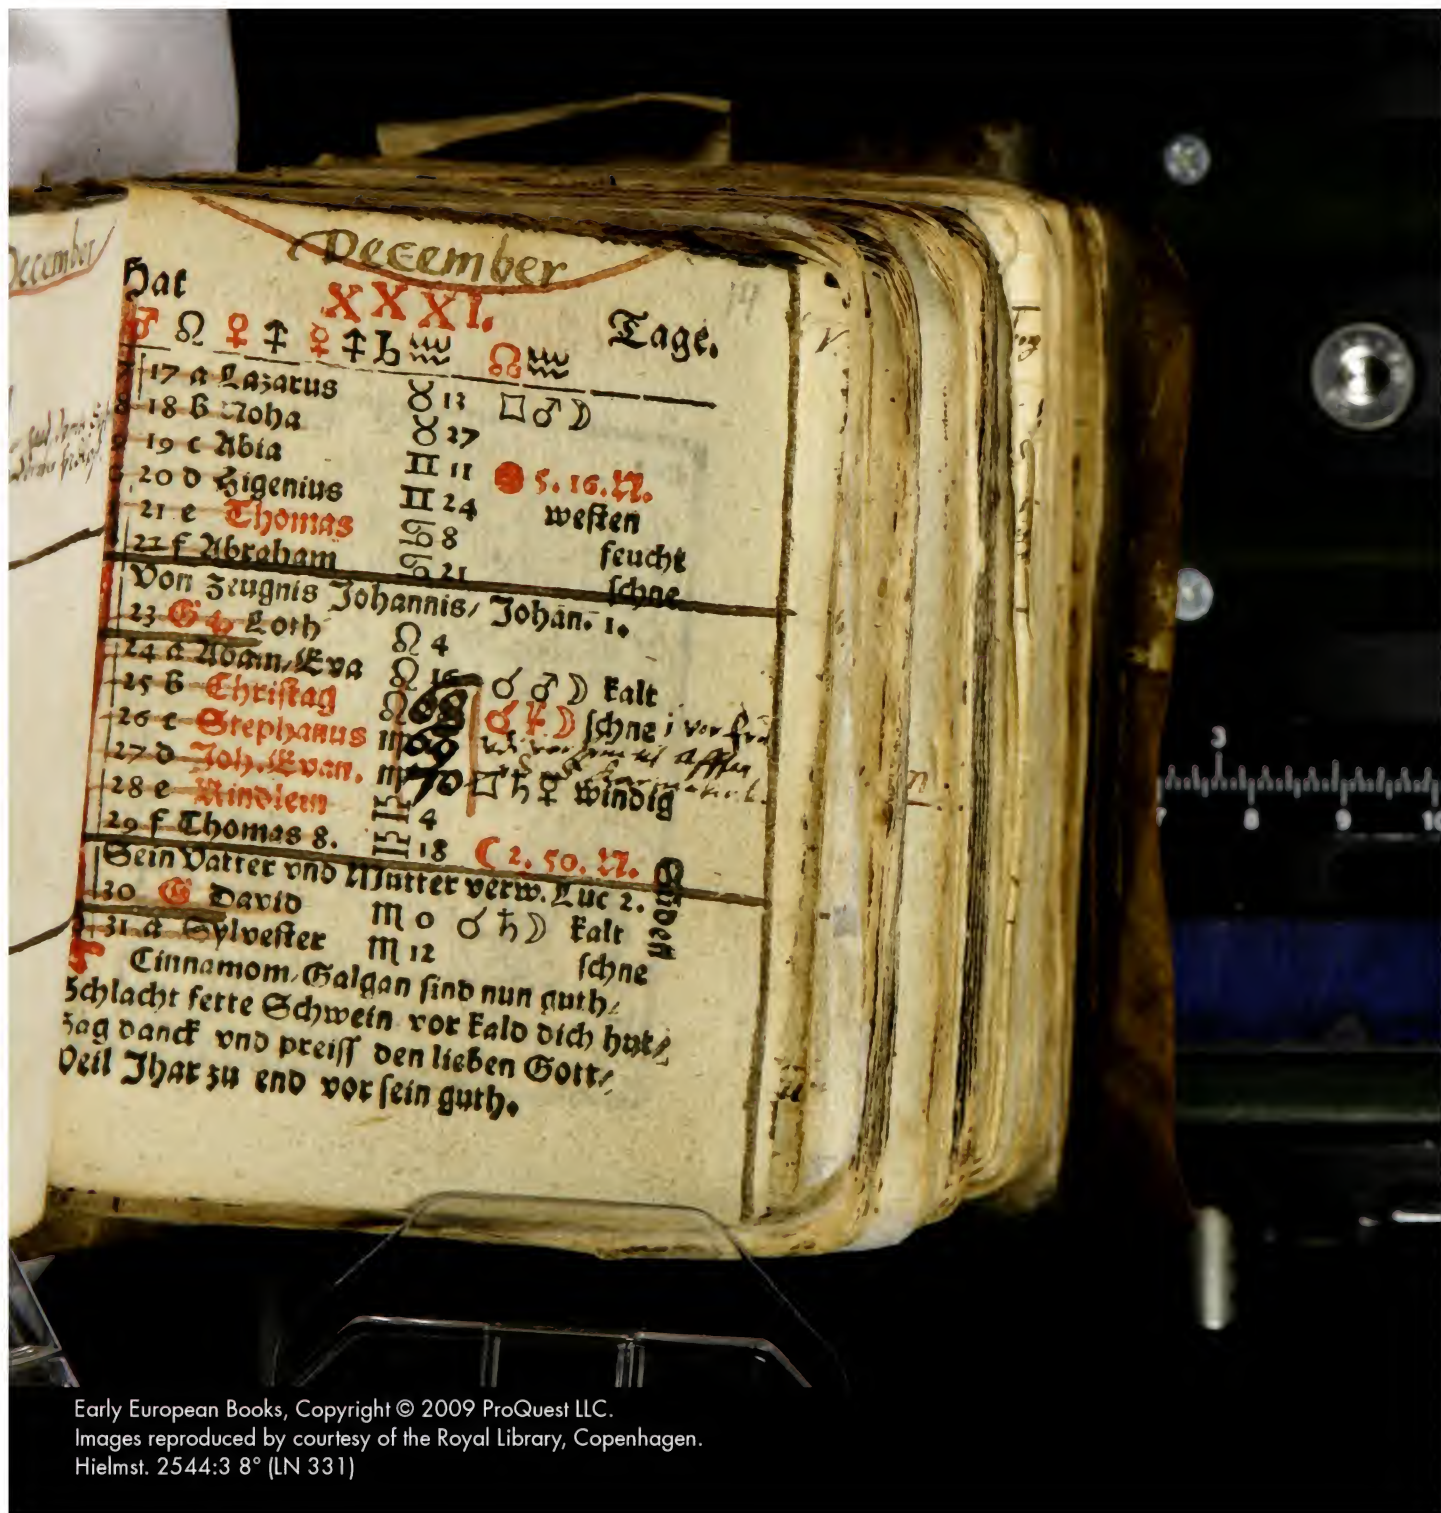 December
December
Hat XXXI. Tage.
♂ ♌ ♀ ♐ ☿ ♐ ♄ ♒ ☊ ♒
17 a Lazarus ♉ 13 □ ♂ ☽
18 b Noha ♉ 27
19 c Abia ♊ 11 5. 16. N.
20 d Zigenius ♊ 24 westen
21 e Thomas ♋ 8 feucht
22 f Abraham ♋ 21 schne
Von Zeugnis Johannis/ Johan. 1.
23 G Loth ♌ 4
24 a Adam/Eva ♌ 16 ☌ ♂ ☽ kalt
25 b Christag ♌ 68 ☌ ☽ schne
26 c Stephanus ♍ 69
27 d Joh. Evan. ♍ 70 □ ♄ ♀ windig
28 e Kindlein ♎ 4
29 f Thomas 8. ♎ 18 ☾ 2. 50. N.
Sein Vatter vnd Mutter verw. Luc 2.
30 G David ♏ 0 ☌ ♄ ☽ kalt
31 a Sylvester ♏ 12 schne
Cinnamom/Galgan sind nun guth/
Schlacht fette Schwein vor kald dich hut/
Sag danck vnd preiss den lieben Gott/
Veil Jhar zu end vor sein guth.
3
7 8 9 10
Early European Books, Copyright © 2009 ProQuest LLC.
Images reproduced by courtesy of the Royal Library, Copenhagen.
Hielmst. 2544:3 8° (LN 331)